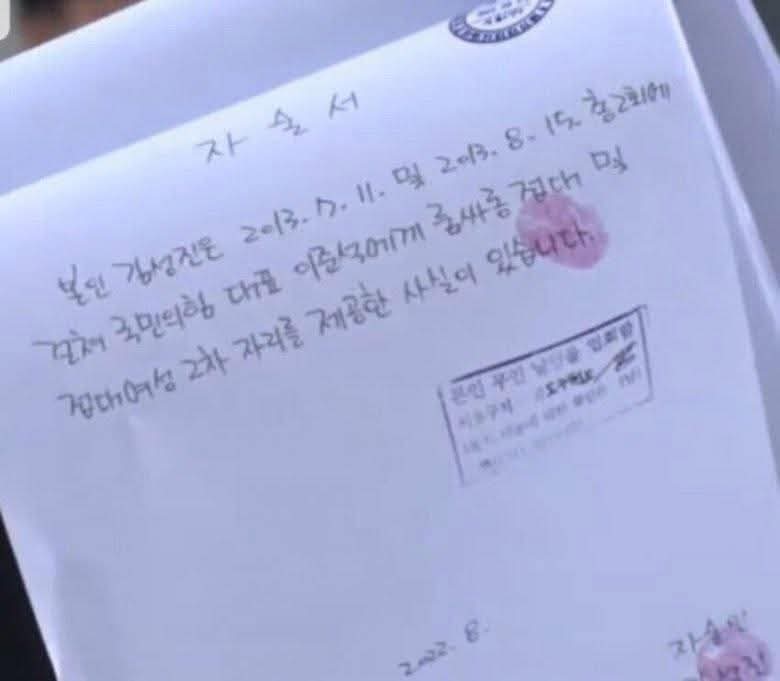 자 술 서
본인 김성진은 2013. 7. 11. 및 2013. 8. 15. 총 2회에
걸쳐 국민의힘 대표 이준석에게 룸싸롱 접대 및
접대여성 2차 자리를 제공한 사실이 있습니다.
본인 무인 날인을
2022. 8.
자술인